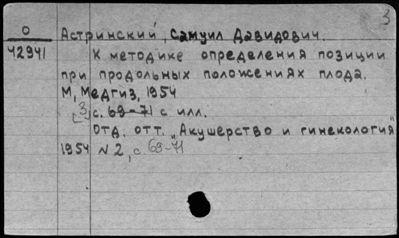 3
О
42941
Астринский, Самуил Давидович.
К методике определения позиции
при продольных положениях плода.
М, Медгиз, 1954
[3] с. 69-71 с илл.
Отд. отт. „Акушерство и гинекология"
1954 № 2, с 69-71